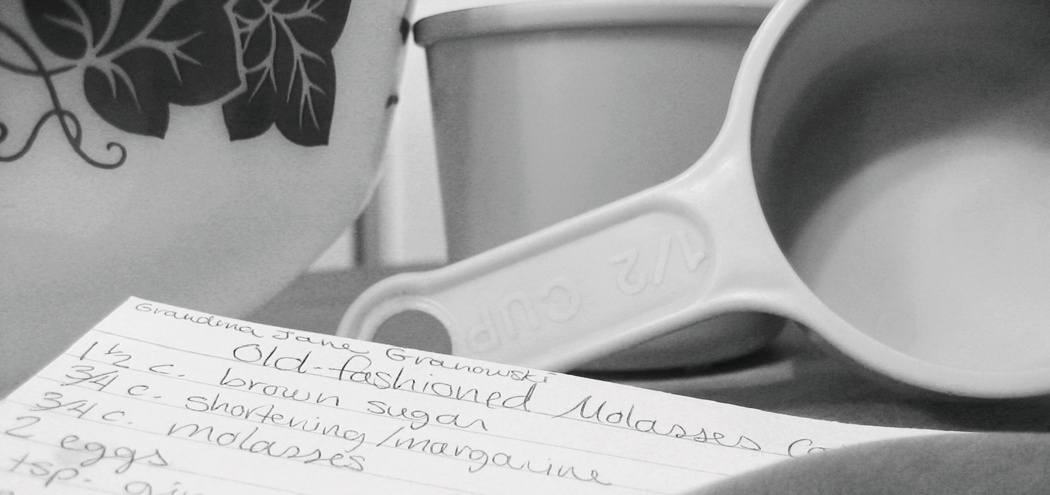 1/2 CUP
Grandma Jane Granowski
Old-fashioned Molasses Co
1 1/2 c. brown sugar
3/4 c. shortening/margarine
3/4 c. molasses
2 eggs
tsp. gin